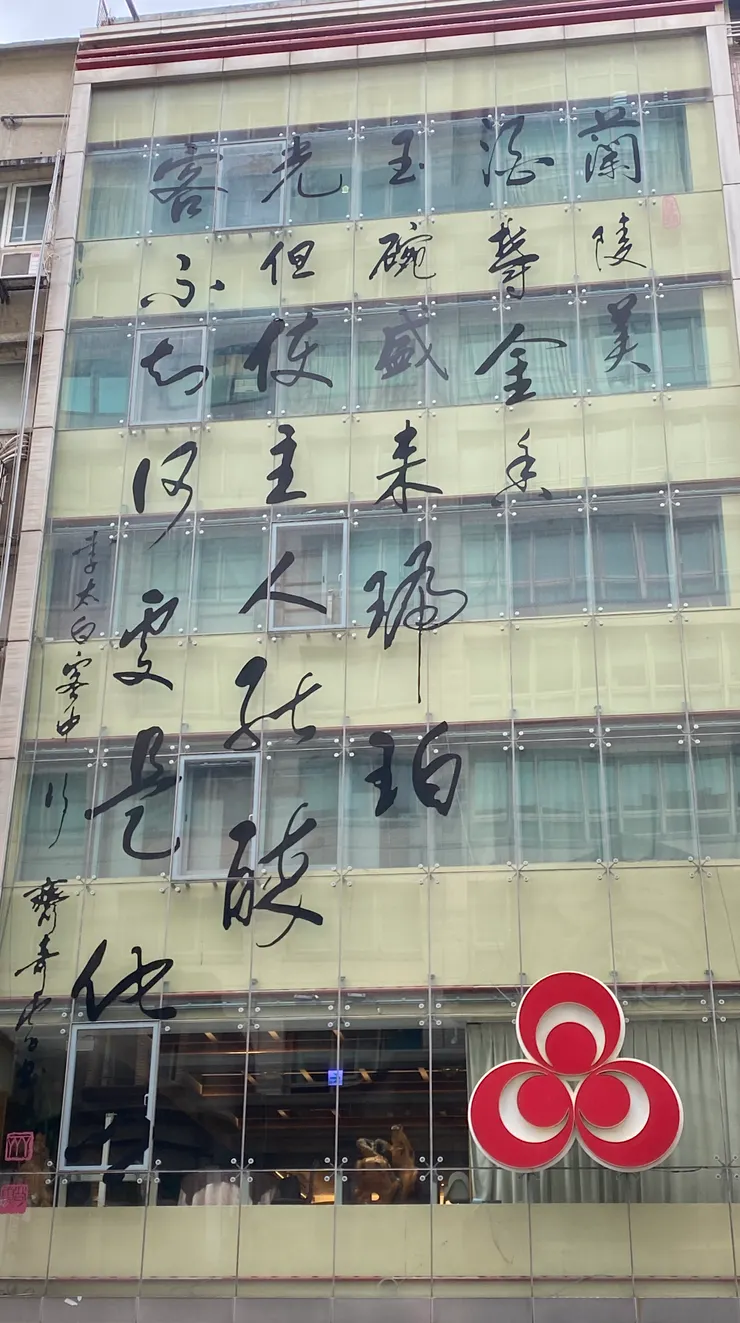 蘭陵美
酒鬱金香
玉碗盛来琥珀
光但使主人能醉
客不知何處是他鄉
李太白客中行